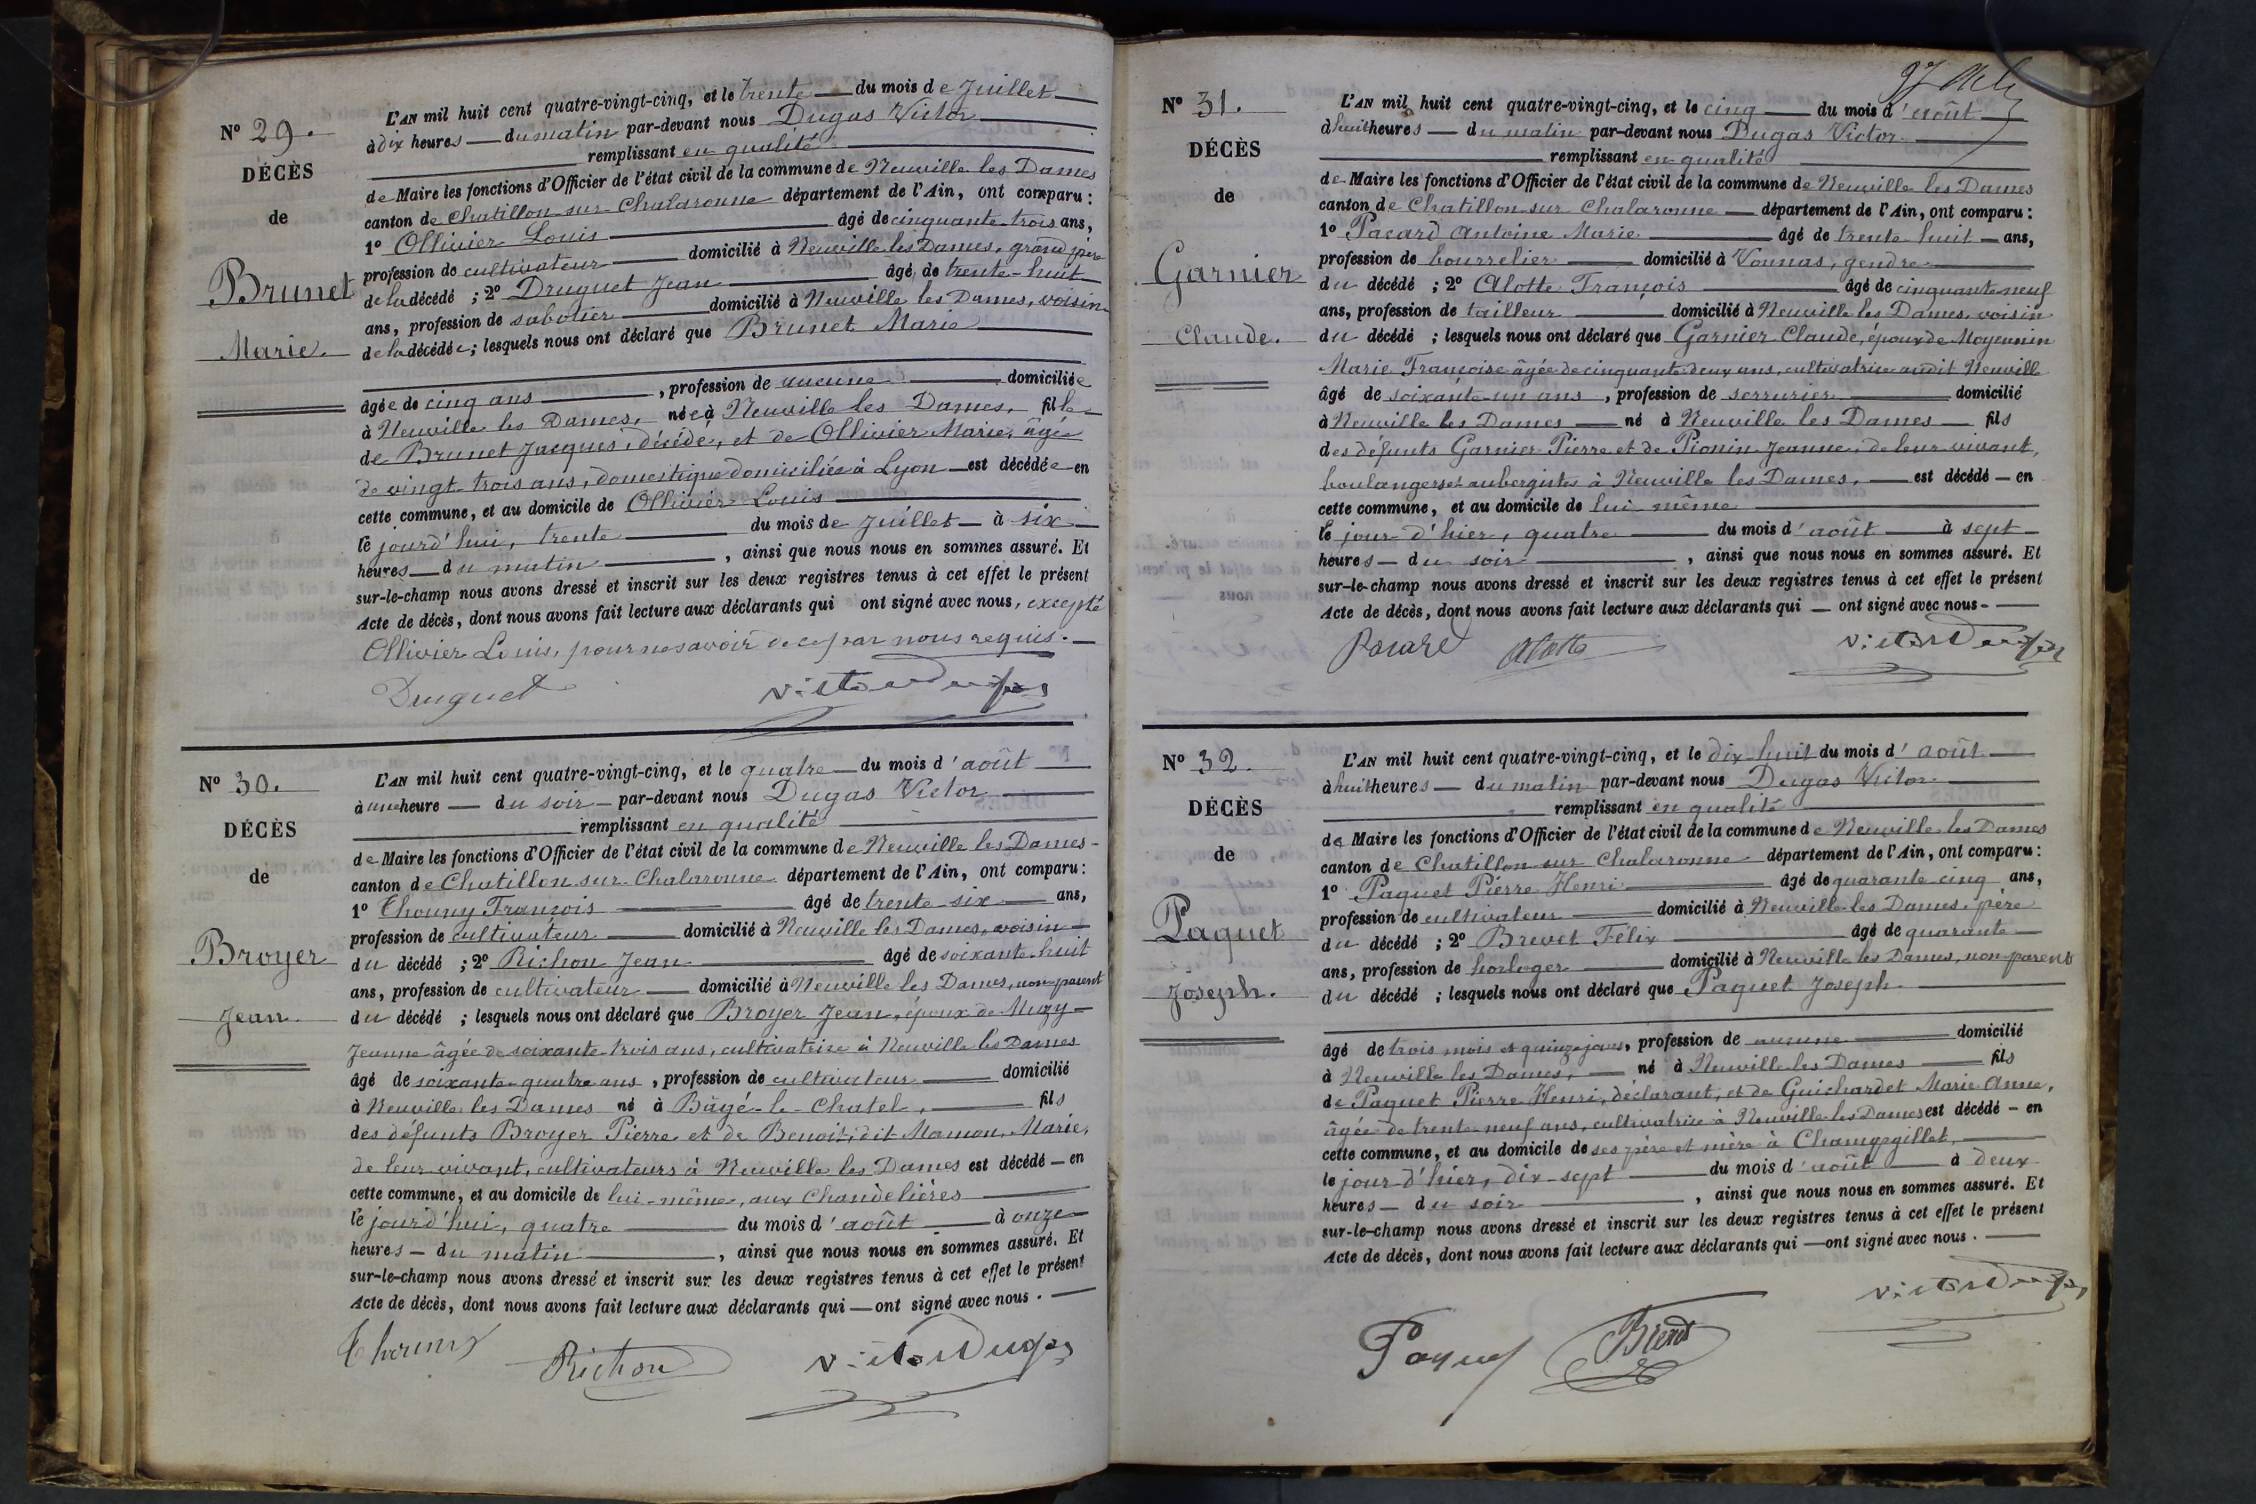 Nº 29.
DÉCÈS
de
Brunet
Marie.
L'AN mil huit cent quatre-vingt-cinq, et le trente du mois de Juillet
à dix heures du matin par-devant nous Dugas Victor
remplissant en qualité
de Maire les fonctions d'Officier de l'état civil de la commune de Neuville les Dames
canton de Chatillon sur Chalaronne département de l'Ain, ont comparu :
1º Ollivier Louis âgé de cinquante-trois ans,
profession de cultivateur domicilié à Neuville les Dames, grand père
de la décédé ; 2º Druguet Jean âgé de trente-huit
ans, profession de sabotier domicilié à Neuville les Dames, voisin
de la décédée ; lesquels nous ont déclaré que Brunet Marie
âgée de cinq ans, profession de aucune domiciliée
à Neuville les Dames, née à Neuville les Dames, fille
de Brunet Jacques, décédé, et de Ollivier Marie, âgée
de vingt-trois ans, domestique domiciliée à Lyon est décédée en
cette commune, et au domicile de Ollivier Louis
le jourd'hui, trente du mois de Juillet à six
heures du matin, ainsi que nous nous en sommes assuré. Et
sur-le-champ nous avons dressé et inscrit sur les deux registres tenus à cet effet le présent
Acte de décès, dont nous avons fait lecture aux déclarants qui ont signé avec nous, excepté
Ollivier Louis, pour ne savoir de ce par nous requis.
Druguet Victor Dugas
Nº 30.
DÉCÈS
de
Broyer
Jean.
L'AN mil huit cent quatre-vingt-cinq, et le quatre du mois d'août
à une heure du soir par-devant nous Dugas Victor
remplissant en qualité
de Maire les fonctions d'Officier de l'état civil de la commune de Neuville les Dames
canton de Chatillon sur Chalaronne département de l'Ain, ont comparu :
1º Thouny François âgé de trente-six ans,
profession de cultivateur domicilié à Neuville les Dames, voisin
du décédé ; 2º Richon Jean âgé de soixante-huit
ans, profession de cultivateur domicilié à Neuville les Dames, non parent
du décédé ; lesquels nous ont déclaré que Broyer Jean, époux de Muzy
Jeanne âgée de soixante-trois ans, cultivatrice à Neuville les Dames
âgé de soixante-quatre ans, profession de cultivateur domicilié
à Neuville les Dames né à Bâgé-le-Chatel, fils
des défunts Broyer Pierre et de Benoit, dit Mamon, Marie,
de leur vivant, cultivateurs à Neuville les Dames est décédé en
cette commune, et au domicile de lui-même, aux Chandelières
le jourd'hui, quatre du mois d'août à onze
heures du matin, ainsi que nous nous en sommes assuré. Et
sur-le-champ nous avons dressé et inscrit sur les deux registres tenus à cet effet le présent
Acte de décès, dont nous avons fait lecture aux déclarants qui ont signé avec nous.
Thouny Richon Victor Dugas
Nº 31.
DÉCÈS
de
Garnier
Claude.
L'AN mil huit cent quatre-vingt-cinq, et le cinq du mois d'août
à huit heures du matin par-devant nous Dugas Victor
remplissant en qualité
de Maire les fonctions d'Officier de l'état civil de la commune de Neuville les Dames
canton de Chatillon sur Chalaronne département de l'Ain, ont comparu :
1º Pacard Antoine Marie âgé de trente-huit ans,
profession de bourrelier domicilié à Vonnas, gendre
du décédé ; 2º Alotte François âgé de cinquante-neuf
ans, profession de tailleur domicilié à Neuville les Dames, voisin
du décédé ; lesquels nous ont déclaré que Garnier Claude, époux de Moyennin
Marie Françoise âgée de cinquante-deux ans, cultivatrice audit Neuville
âgé de soixante-un ans, profession de serrurier domicilié
à Neuville les Dames né à Neuville les Dames fils
des défunts Garnier Pierre et de Pionin Jeanne, de leur vivant,
boulangers et aubergistes à Neuville les Dames, est décédé en
cette commune, et au domicile de lui-même
le jour d'hier, quatre du mois d'août à sept
heures du soir, ainsi que nous nous en sommes assuré. Et
sur-le-champ nous avons dressé et inscrit sur les deux registres tenus à cet effet le présent
Acte de décès, dont nous avons fait lecture aux déclarants qui ont signé avec nous.
Pacard Alotte Victor Dugas
Nº 32.
DÉCÈS
de
Paquet
Joseph.
L'AN mil huit cent quatre-vingt-cinq, et le dix-huit du mois d'août
à huit heures du matin par-devant nous Dugas Victor
remplissant en qualité
de Maire les fonctions d'Officier de l'état civil de la commune de Neuville les Dames
canton de Chatillon sur Chalaronne département de l'Ain, ont comparu :
1º Paquet Pierre Henri âgé de quarante cinq ans,
profession de cultivateur domicilié à Neuville les Dames, père
du décédé ; 2º Brevet Félix âgé de quarante
ans, profession de horloger domicilié à Neuville les Dames, non parent
du décédé ; lesquels nous ont déclaré que Paquet Joseph
âgé de trois mois et quinze jours, profession de aucune domicilié
à Neuville les Dames, né à Neuville les Dames fils
de Paquet Pierre Henri, déclarant, et de Guichardet Marie Anne,
âgée de trente-neuf ans, cultivatrice à Neuville les Dames est décédé en
cette commune, et au domicile de ses père et mère à Champgillet,
le jour d'hier, dix-sept du mois d'août à deux
heures du soir, ainsi que nous nous en sommes assuré. Et
sur-le-champ nous avons dressé et inscrit sur les deux registres tenus à cet effet le présent
Acte de décès, dont nous avons fait lecture aux déclarants qui ont signé avec nous.
Paquet Brevet Victor Dugas